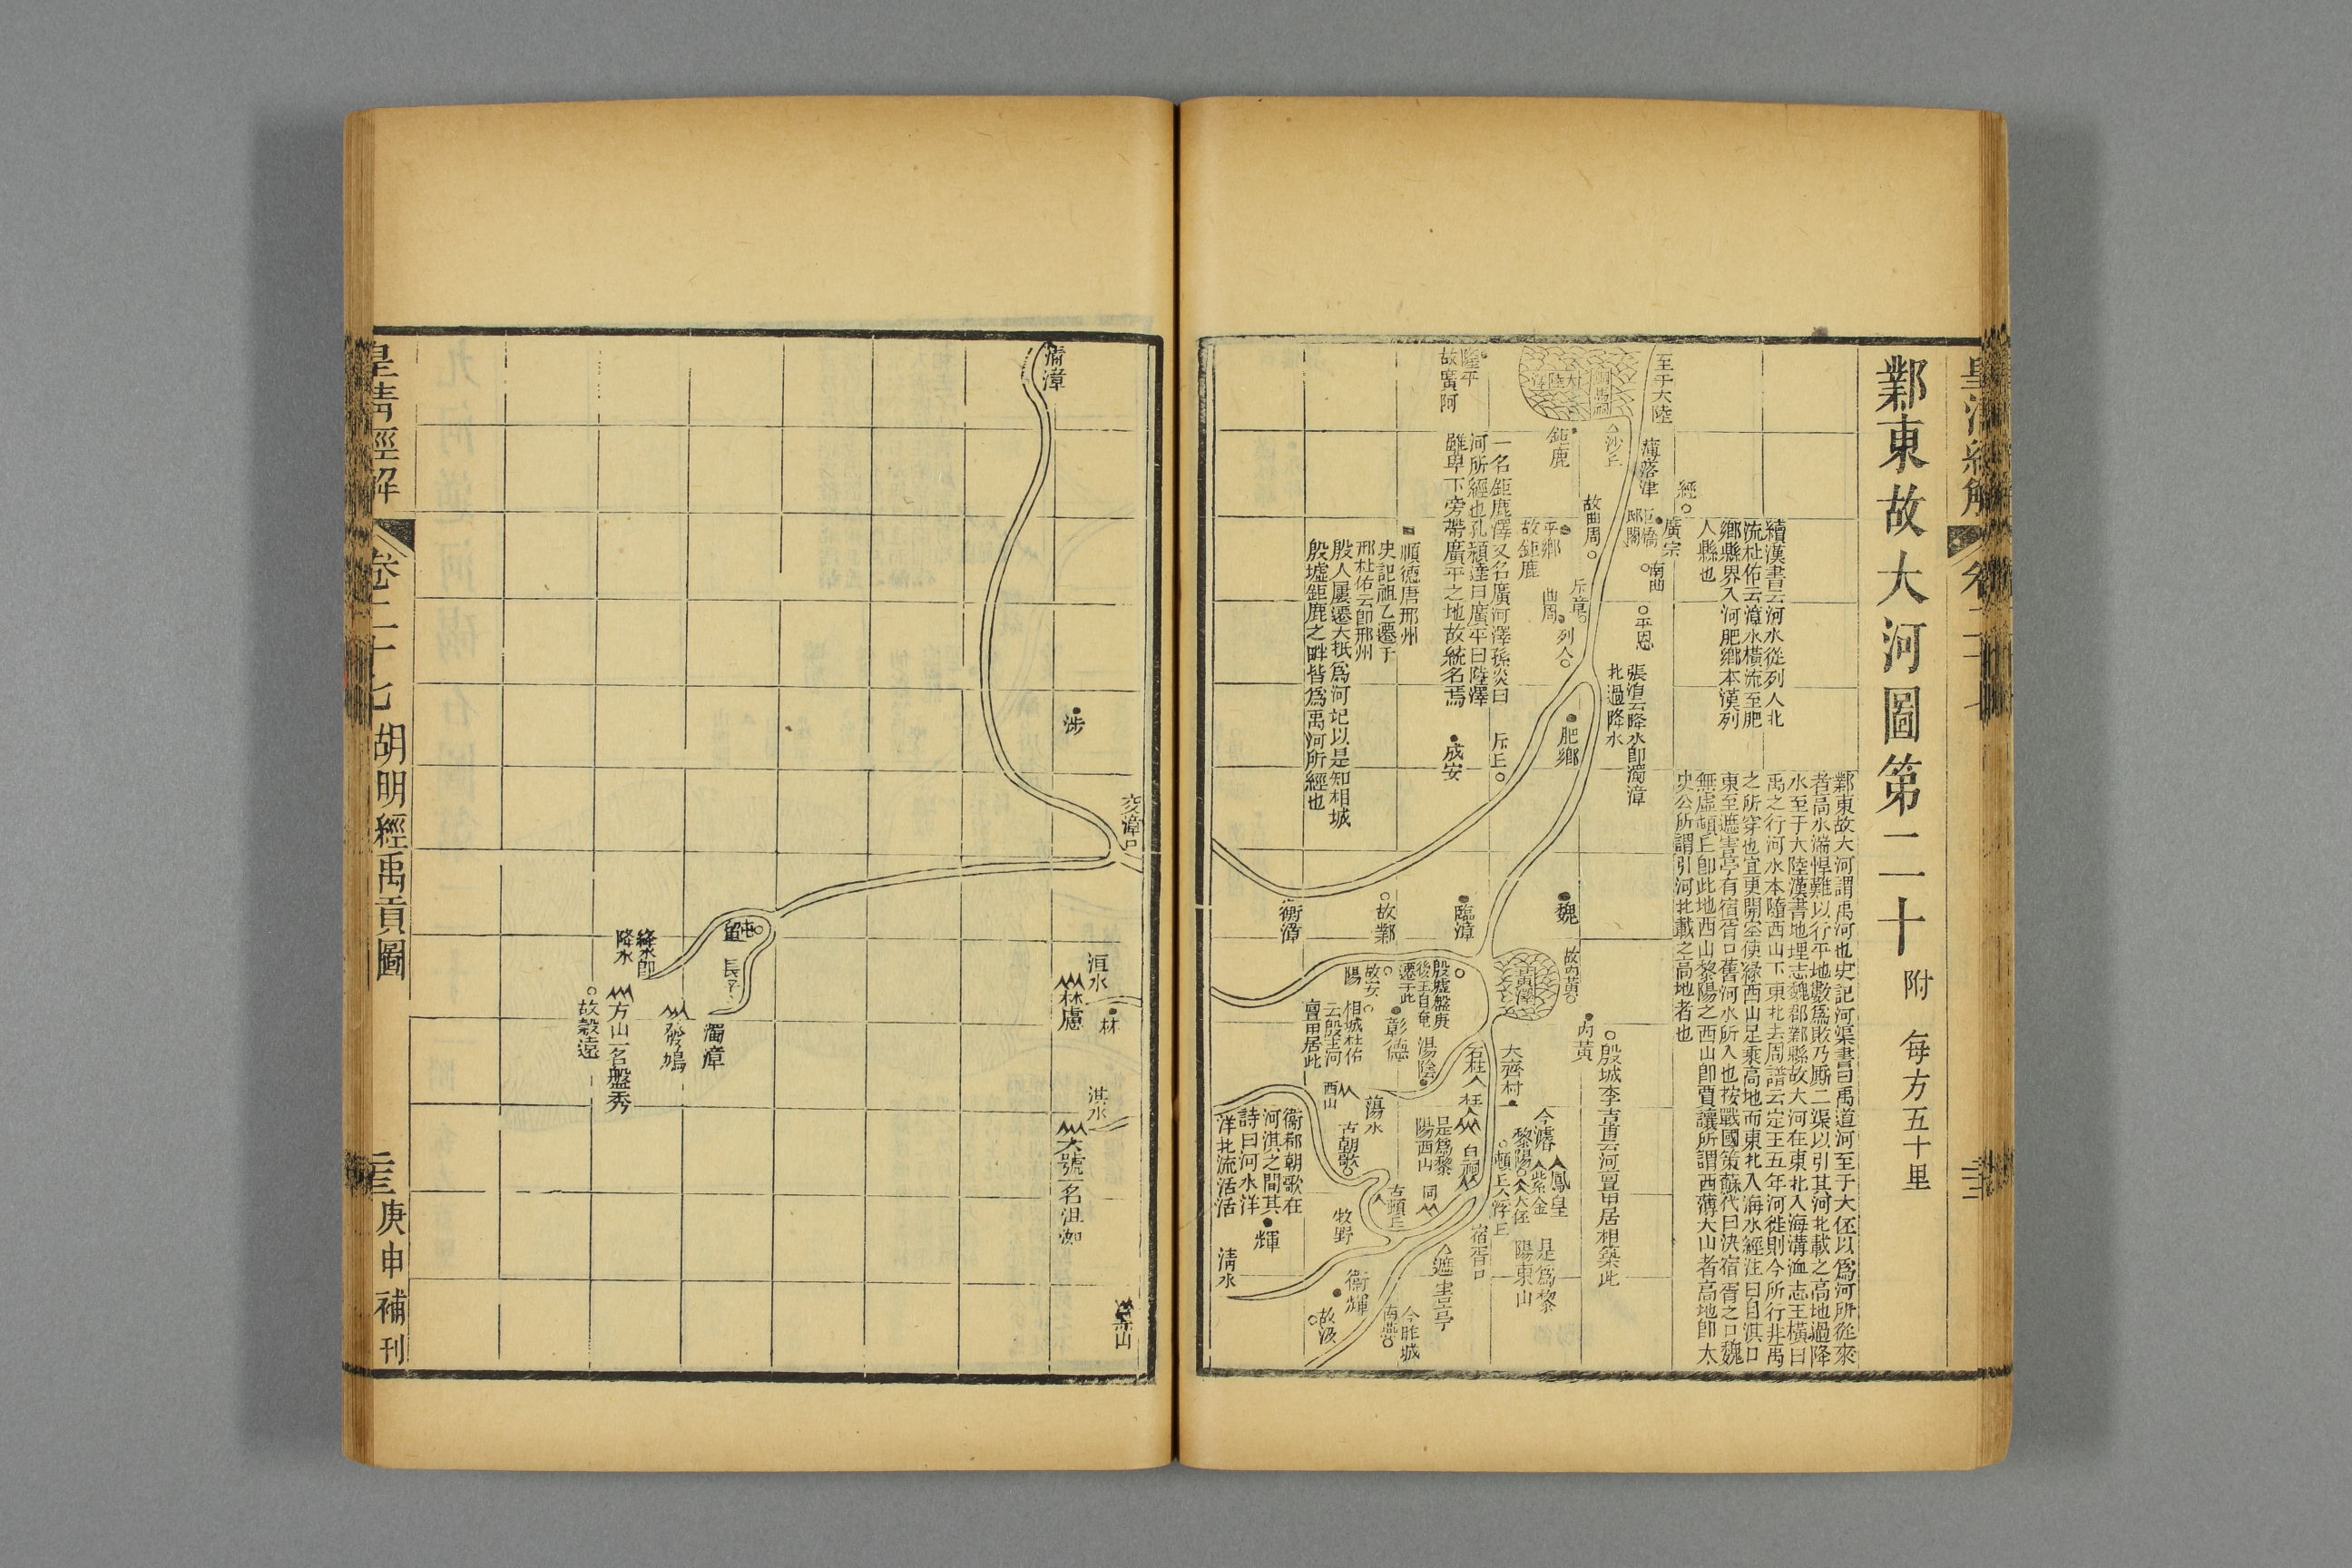 鄴東故大河圖第二十 附 每方五十里
鄴東故大河謂禹河也史記河渠書曰禹道河至于大伾以爲河所從來
者高水湍悍難以行平地數爲敗乃廝二渠以引其河北載之高地過降
水至于大陸漢書地理志魏郡鄴縣故大河在東北入海溝洫志王橫曰
禹之行河水本隨西山下東北去周譜云定王五年河徙則今所行非禹
之所穿也宜更開空使緣西山足乘高地而東北入海水經注曰自淇口
東至遮害亭有宿胥口舊河水所入也按戰國策蘇代曰決宿胥之口魏
無虛頓丘卽此地西山黎陽之西山卽賈讓所謂西薄大山者高地卽太
史公所謂引河北載之高地者也
續漢書云河水從列人北
流杜佑云漳水橫流至肥
鄉縣界入河肥鄉本漢列
人縣也
至于大陸
薄落津
經
廣宗
巨橋
邸閣
南曲
平恩
張洎云降水卽濁漳
北過降水
大陸澤
銅馬祠
沙丘
鉅鹿
隆平
故廣阿
一名鉅鹿澤又名廣河澤孫炎曰
河所經也孔穎達曰廣平曰陸澤
雖卑下旁帶廣平之地故統名焉
故曲周
平鄉
故鉅鹿
曲周
斥章
列人
肥鄉
斥丘
成安
順德唐邢州
史記祖乙遷于
邢杜佑云卽邢州
殷人屢遷大抵爲河圮以是知相城
殷墟鉅鹿之畔皆爲禹河所經也
魏
臨漳
故鄴
衡漳
故內黃
黃澤
內黃
殷城李吉甫云河亶甲居相築此
殷墟盤庚
後王自奄
遷于此
故安
陽
彰德
湯陰
相城杜佑
云殷王河
亶甲居此
大齊村
石柱
枉人
西山
蕩水
古朝歌
是爲黎
陽西山
白祠
同
今濬
黎陽
頓丘
鳳皇
紫金
大伾
浮丘
是爲黎
陽東山
宿胥口
遮害亭
古頓丘
牧野
衛郡朝歌在
河淇之間其
詩曰河水洋
洋北流活活
輝
淸水
衛輝
故汲
今胙城
南燕
清漳
涉
交漳口
洹水
林慮
林
淇水
大號一名沮洳
屯留
長子
濁漳
絳水卽
降水
發鳩
方山一名盤秀
故穀遠
皇清經解
卷二十七
胡明經禹貢圖
三三
庚申補刊